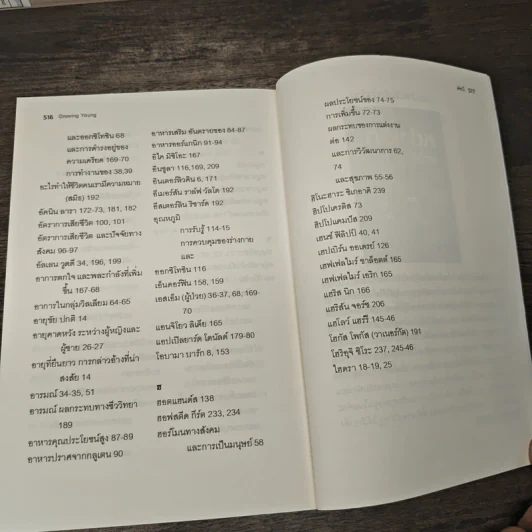 516 Growing Young
และออกซิโทซิน 68
และการดำรงอยู่ของ
ความเครียด 169-70
การทำงานของ 38,39
อะไรทำให้ชีวิตคนเรามีความหมาย
(สมิธ) 192
อัคนิน ลารา 172-73, 181, 182
อัตราการเสียชีวิต 100, 101
อัตราการเสียชีวิต และปัจจัยทาง
สังคม 96-97
อัลเลน วูดดี 34, 196, 199
อาการตกใจ และพละกำลังที่เพิ่ม
ขึ้น 167-68
อาการในกลุ่มวิลเลียม 64-65
อายุขัย ปกติ 14
อายุคาดหวัง ระหว่างผู้หญิงและ
ผู้ชาย 26-27
อายุที่ยืนยาว การกล่าวอ้างที่น่า
สงสัย 14
อารมณ์ 34-35, 51
อารมณ์ ผลกระทบทางชีววิทยา
189
อาหารคุณประโยชน์สูง 87-89
อาหารปราศจากกลูเตน 90
อาหารเสริม อันตรายของ 84-87
อาหารออร์แกนิก 91-94
อิไค มิชิโยะ 167
อินซูลา 116,169, 209
อินเตอร์ลิวคิน 6, 171
อีเมอร์สัน ราล์ฟ วัลโด 192
อีสเตอร์ลิน ริชาร์ด 192
อุณหภูมิ
การรับรู้ 114-15
การควบคุมของร่างกาย
และ
ออกซิโทซิน 116
เอ็นดอร์ฟิน 158, 159
เอสเอ็ม (ผู้ป่วย) 36-37, 68, 169-
70
แอนจิโยว ลิเดีย 165
แอปเปิลยาร์ด โดนัลด์ 179-80
โอบามา บารัก 8, 153
ฮ
ฮอตแฮนด์ส 138
ฮอฟสตีด กีร์ต 233, 234
ฮอร์โมนทางสังคม
และการเป็นมนุษย์ 58
ดัชนี 517
ผลประโยชน์ของ 74-75
การเพิ่มขึ้น 72-73
ผลกระทบของการแต่งงาน
ต่อ 142
และการวิวัฒนาการ 62,
74
และสุขภาพ 55-56
ฮิโนะฮาระ ชิเกอากิ 239
ฮิปโปเครติส 73
ฮิปโปแคมปัส 209
เฮนซ์ ฟิลิปป์ 40, 41
เฮปเบิร์น ออเดรย์ 126
เฮฟเฟลไมร์ ชาล็อตต์ 165
เฮฟเฟลไมร์ เอริก 165
แฮริส นิก 166
แฮริสัน จอร์ช 206
แฮโลว์ แฮร์รี 145-46
โฮกัส โพกัส (วาเนอร์กัต) 191
โฮริอุจิ ชิโระ 237, 245-46
ไฮดรา 18-19, 25